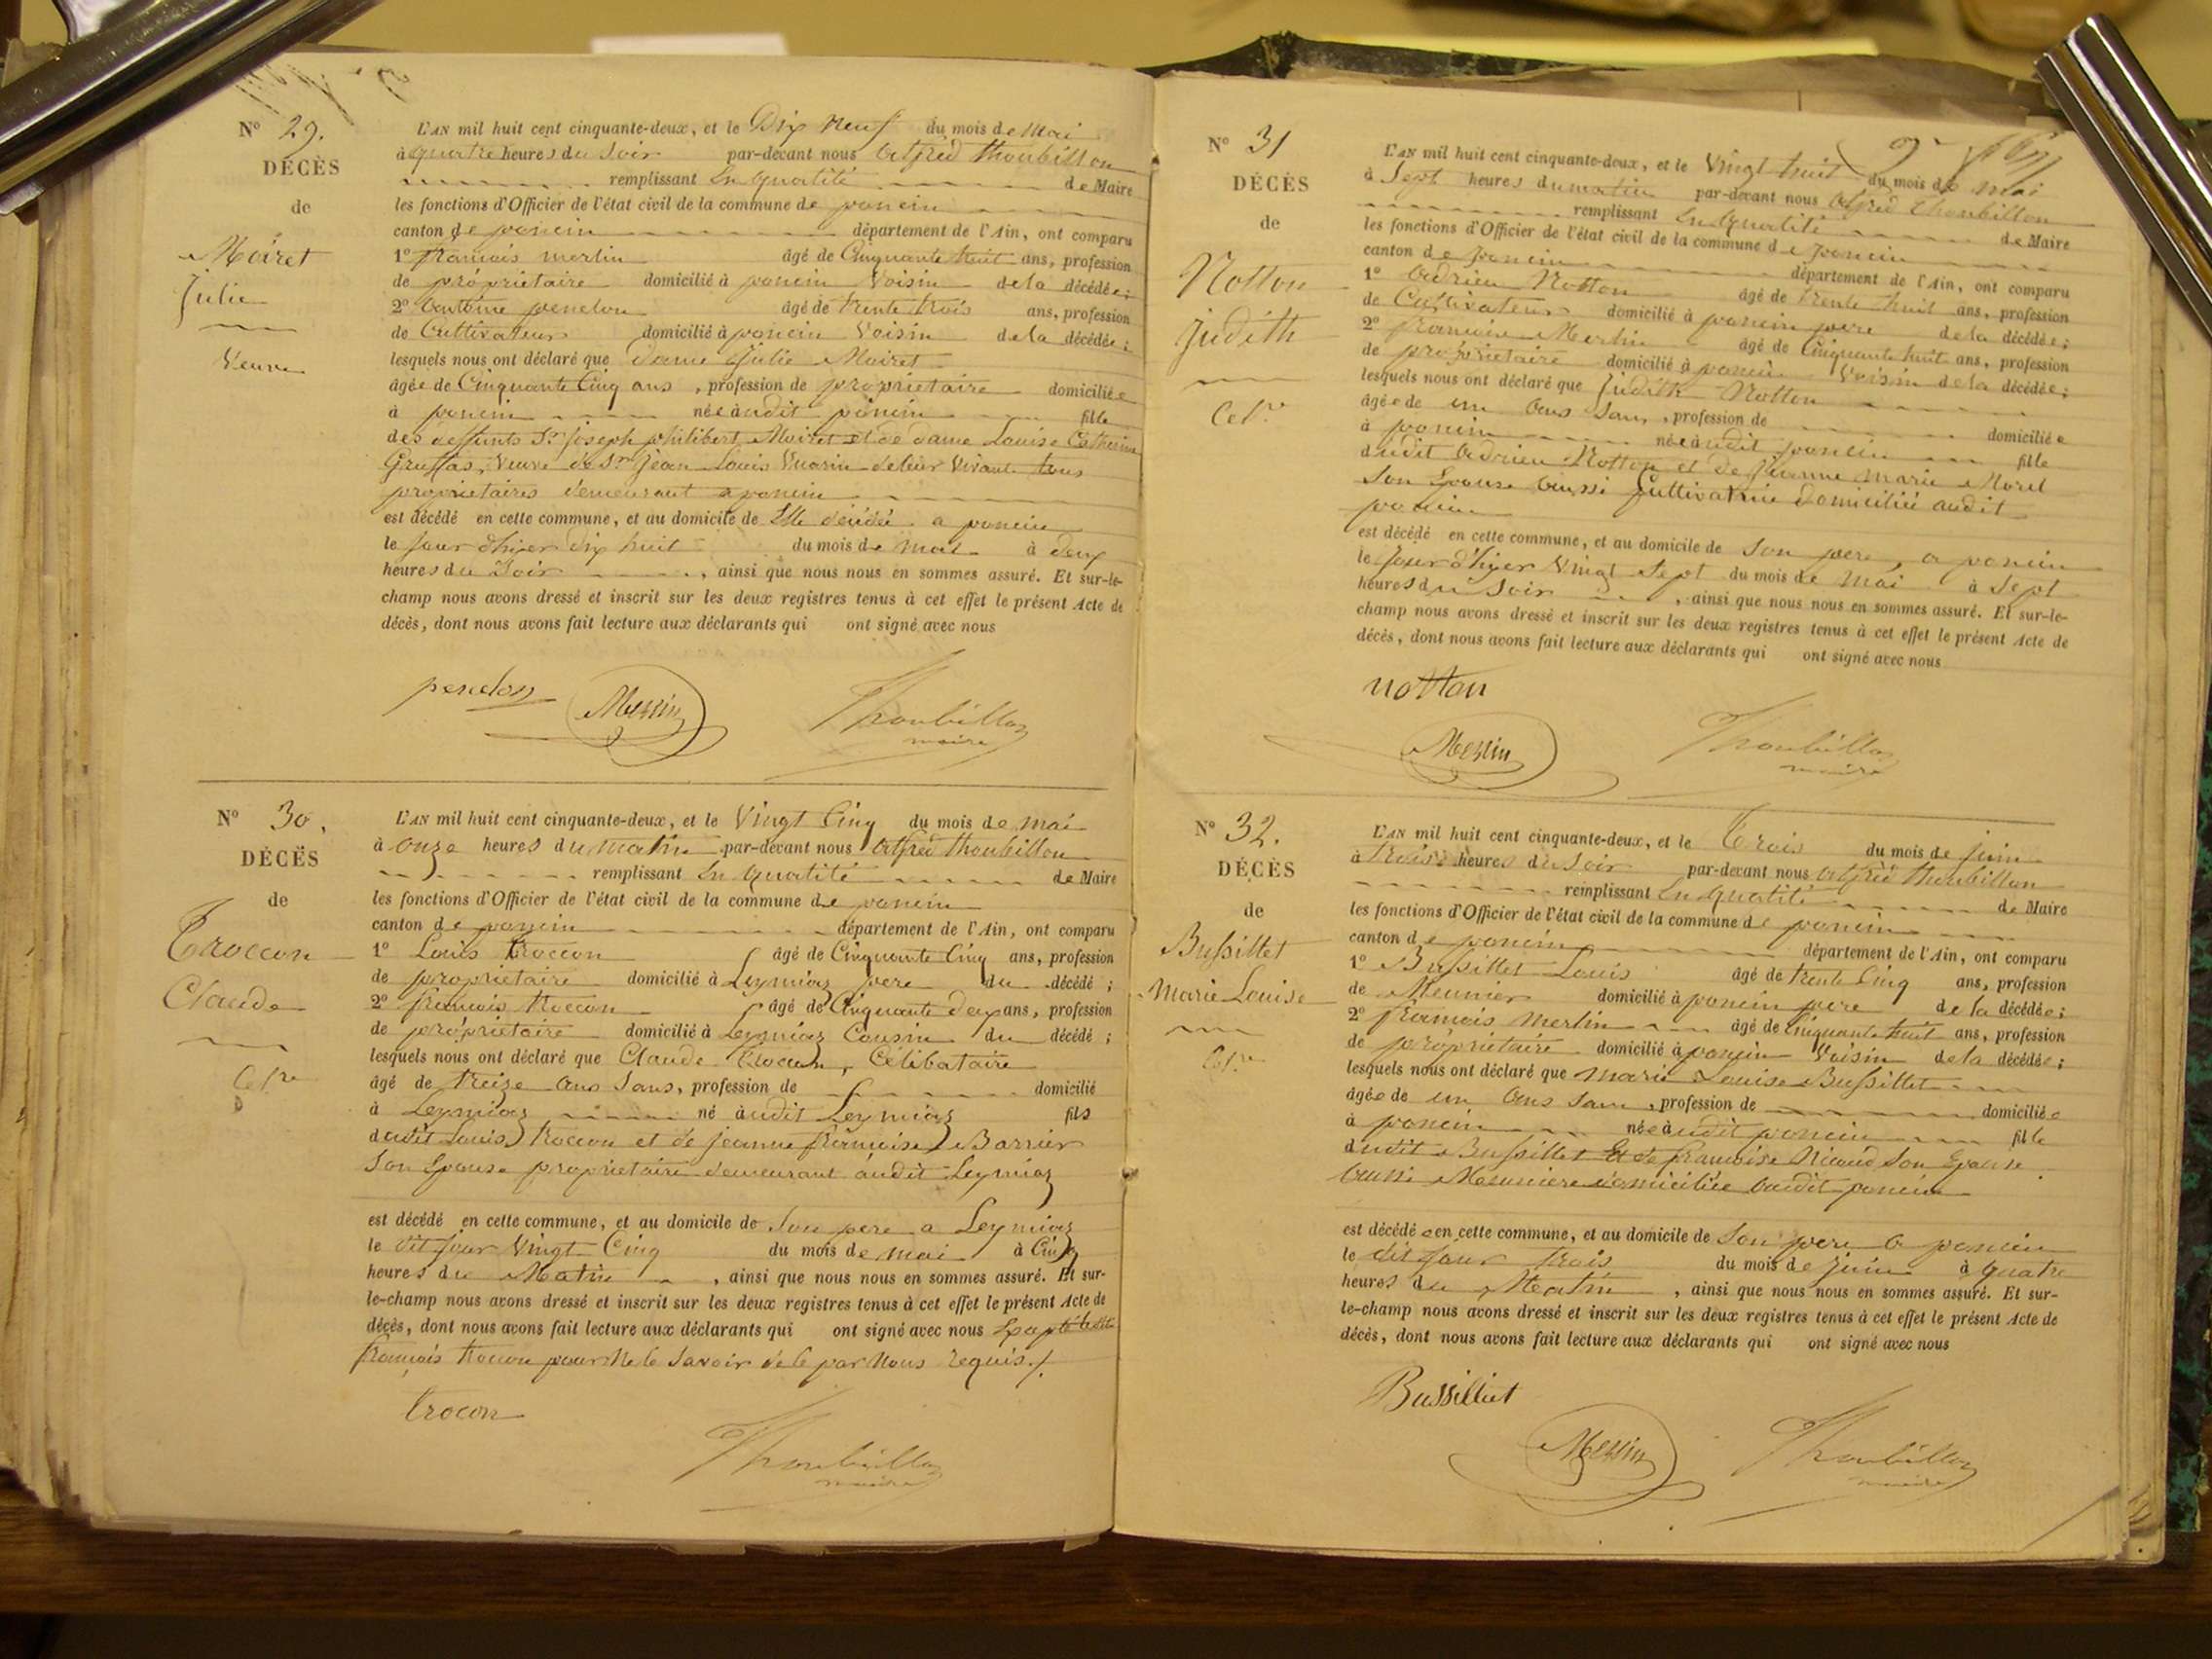 Nº 29.
DÉCÈS
de
Moiret
Julie
Veuve
L'AN mil huit cent cinquante-deux, et le Dix neuf du mois de Mai
à quatre heures du Soir par-devant nous Alfred Thoubillon
remplissant En qualité de Maire
les fonctions d'Officier de l'état civil de la commune de poncin
canton de poncin département de l'Ain, ont comparu
1º françois merlin âgé de Cinquante huit ans, profession
de propriétaire domicilié à poncin Voisin de la décédée;
2º Antoine penelon âgé de trente trois ans, profession
de Cultivateur domicilié à poncin Voisin de la décédée;
lesquels nous ont déclaré que dame Julie Moiret
âgée de Cinquante Cinq ans, profession de propriétaire domiciliée
à poncin née audit poncin fille
des deffunts Sr joseph philibert Moiret et de dame Louise Catherine
Gruffas, Veuve de Sr Jean Louis Vuarin de leur Vivant tous
propriétaires demeurant a poncin
est décédé en cette commune, et au domicile de Elle décédée a poncin
le jour d'hyer dix huit du mois de mai à deux
heures du Soir, ainsi que nous nous en sommes assuré. Et sur-le-
champ nous avons dressé et inscrit sur les deux registres tenus à cet effet le présent Acte de
décès, dont nous avons fait lecture aux déclarants qui ont signé avec nous
penelon Merlin Thoubillon
maire
Nº 30.
DÉCÈS
de
Troccon
Claude
Celre
L'AN mil huit cent cinquante-deux, et le Vingt Cinq du mois de mai
à onze heures du matin par-devant nous Alfred Thoubillon
remplissant En qualité de Maire
les fonctions d'Officier de l'état civil de la commune de poncin
canton de poncin département de l'Ain, ont comparu
1º Louis Troccon âgé de Cinquante Cinq ans, profession
de propriétaire domicilié à Leymiaz pere du décédé;
2º françois troccon âgé de Cinquante deux ans, profession
de propriétaire domicilié à Leymiaz Cousin du décédé;
lesquels nous ont déclaré que Claude Trocon, Célibataire
âgé de treize ans Sans, profession de domicilié
à Leymiaz né audit Leymiaz fils
dudit Louis Troccon et de jeanne françoise Barrier
Son Epouse propriétaire demeurant audit Leymiaz
est décédé en cette commune, et au domicile de Son pere a Leymiaz
le dit jour Vingt Cinq du mois de mai à Cinq
heures du Matin, ainsi que nous nous en sommes assuré. Et sur-
le-champ nous avons dressé et inscrit sur les deux registres tenus à cet effet le présent Acte de
décès, dont nous avons fait lecture aux déclarants qui ont signé avec nous
françois trocon pour Ne le Savoir de le par Nous requis./.
trocon Thoubillon
maire
Nº 31
DÉCÈS
de
Notton
Judith
Celre
L'AN mil huit cent cinquante-deux, et le Vingt huit du mois de mai
à Sept heures du matin par-devant nous Alfred Thoubillon
remplissant En qualité de Maire
les fonctions d'Officier de l'état civil de la commune de poncin
canton de poncin département de l'Ain, ont comparu
1º Adrien Notton âgé de trente huit ans, profession
de Cultivateur domicilié à poncin pere de la décédée;
2º françois Merlin âgé de Cinquante huit ans, profession
de propriétaire domicilié à poncin Voisin de la décédée;
lesquels nous ont déclaré que Judith Notton
âgée de un ans Sans, profession de domiciliée
à poncin née audit poncin fille
dudit Adrien Notton et de jeanne marie Morel
Son Epouse aussi Cultivatrice domiciliée audit
poncin
est décédé en cette commune, et au domicile de Son pere, a poncin
le jour d'hyer Vingt Sept du mois de mai à Sept
heures du Soir, ainsi que nous nous en sommes assuré. Et sur-le-
champ nous avons dressé et inscrit sur les deux registres tenus à cet effet le présent Acte de
décès, dont nous avons fait lecture aux déclarants qui ont signé avec nous
notton
Merlin Thoubillon
maire
Nº 32.
DÉCÈS
de
Bussillet
Marie Louise
Celre
L'AN mil huit cent cinquante-deux, et le Trois du mois de juin
à trois heures du soir par-devant nous Alfred Thoubillon
remplissant En qualité de Maire
les fonctions d'Officier de l'état civil de la commune de poncin
canton de poncin département de l'Ain, ont comparu
1º Bussillet Louis âgé de trente Cinq ans, profession
de Meunier domicilié à poncin pere de la décédée;
2º françois Merlin âgé de Cinquante huit ans, profession
de propriétaire domicilié à poncin Voisin de la décédée;
lesquels nous ont déclaré que marie Louise Bussillet
âgée de un ans Sans, profession de domiciliée
à poncin née audit poncin fille
dudit Bussillet Et de françoise Nicoud Son Epouse
aussi Meunière domiciliée audit poncin
est décédée en cette commune, et au domicile de Son pere a poncin
le dit jour trois du mois de juin à quatre
heures du Matin, ainsi que nous nous en sommes assuré. Et sur-
le-champ nous avons dressé et inscrit sur les deux registres tenus à cet effet le présent Acte de
décès, dont nous avons fait lecture aux déclarants qui ont signé avec nous
Bussilliet
Merlin Thoubillon
maire